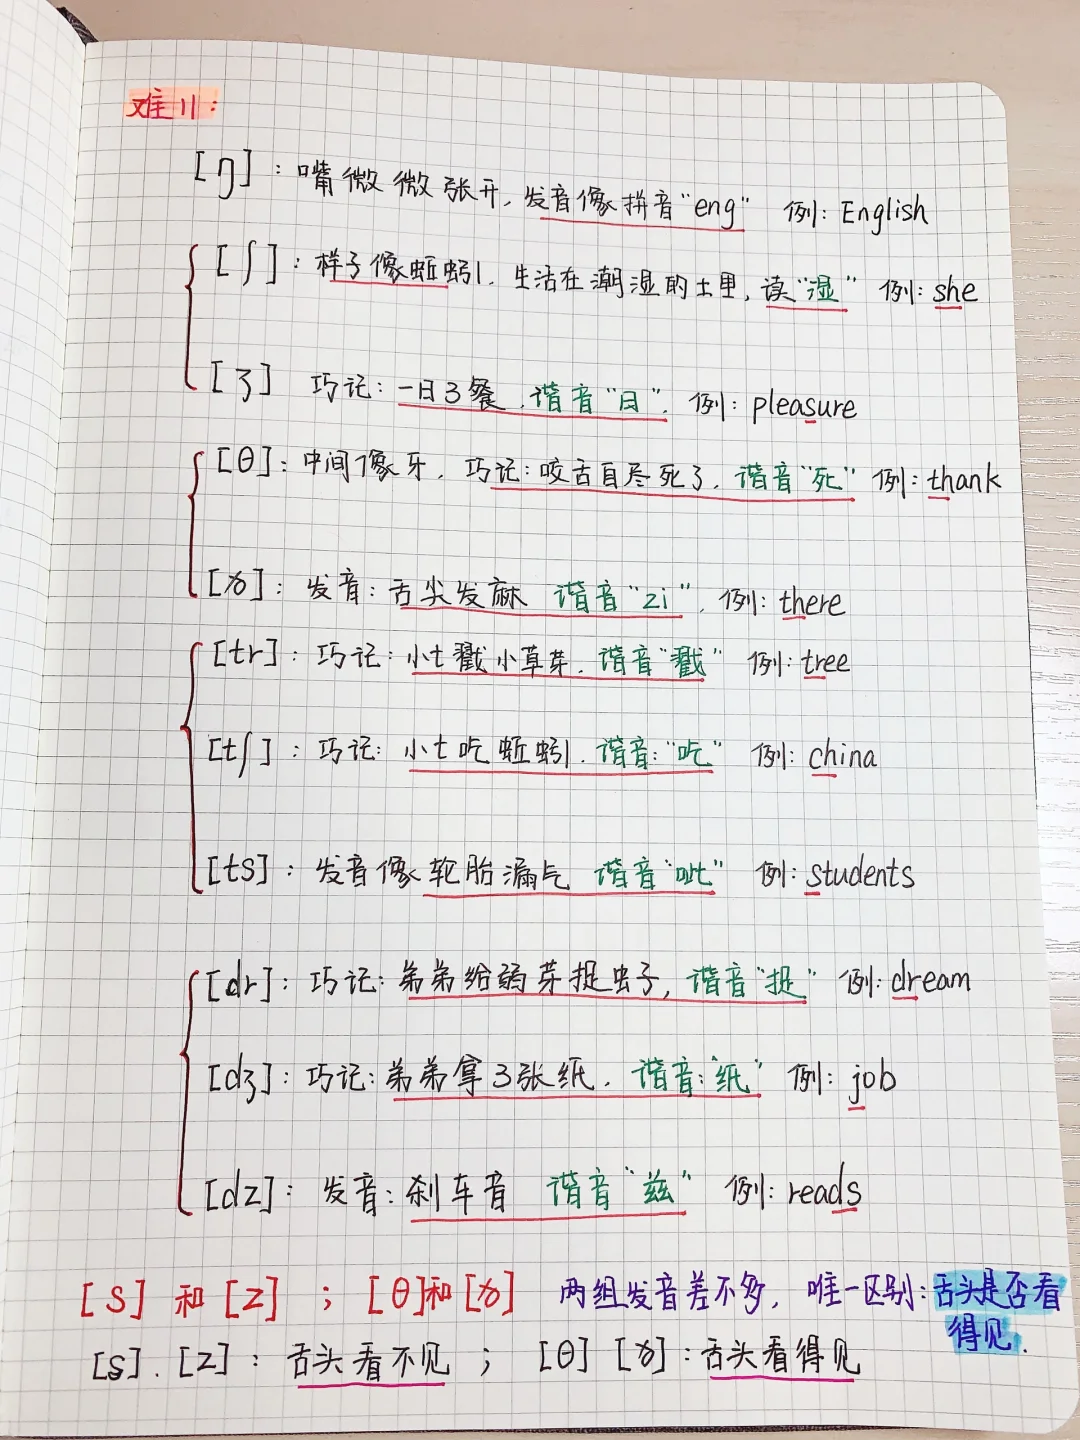 难11:
[ŋ]:嘴微微张开,发音像拼音"eng" 例:English
[ʃ]:样子像蚯蚓,生活在潮湿的土里,读"湿" 例:she
[ʒ] 巧记:一日3餐,谐音"日",例:pleasure
[θ]:中间像牙,巧记:咬舌自尽死了,谐音"死" 例:thank
[ð]:发音:舌尖发麻 谐音"zi",例:there
[tr]:巧记:小t戳小草芽,谐音"戳" 例:tree
[tʃ]:巧记:小t吃蚯蚓,谐音:"吃" 例:china
[ts]:发音像轮胎漏气 谐音"呲" 例:students
[dr]:巧记:弟弟给弱芽捉虫子,谐音"捉" 例:dream
[dʒ]:巧记:弟弟拿3张纸,谐音:"纸" 例:job
[dz]:发音:刹车音 谐音"兹" 例:reads
[s]和[z];[θ]和[ð] 两组发音差不多,唯一区别:舌头是否看
得见.
[s].[z]:舌头看不见;[θ][ð]:舌头看得见